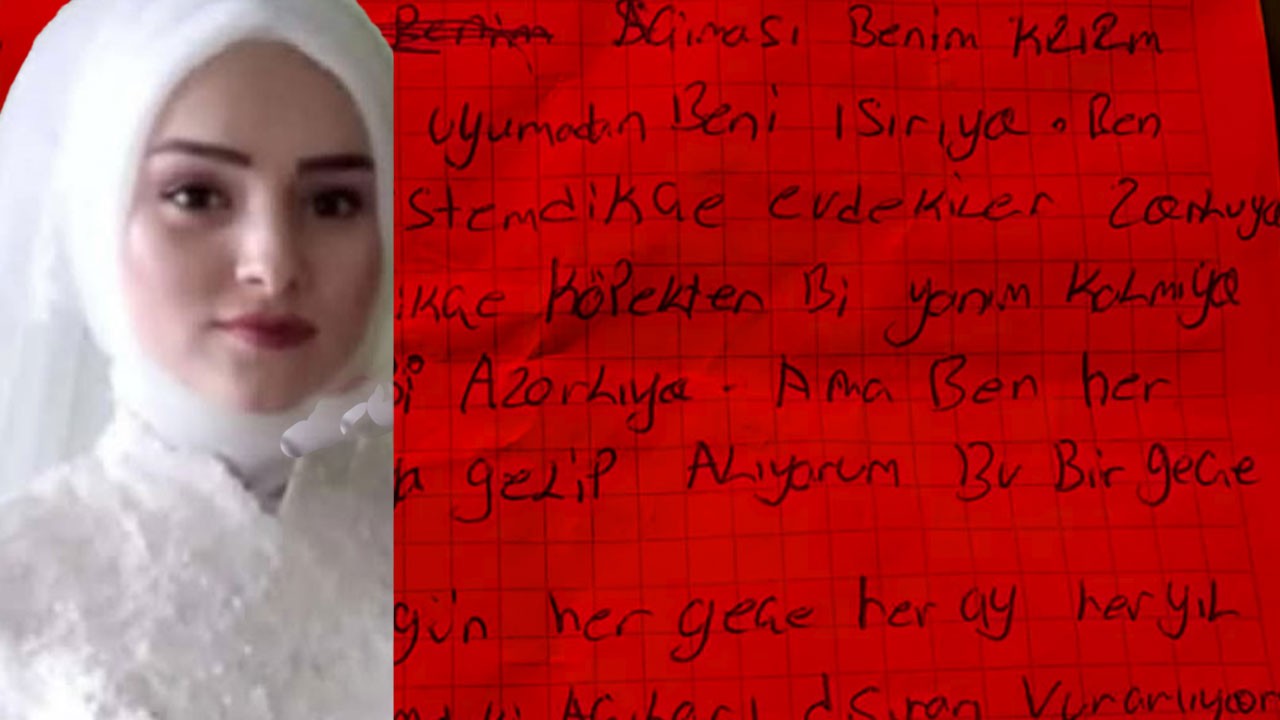 Benim Acıması Benim kızım
uyumadan Beni ısırıya. Ben
istemdikçe evdekiler zorluya
ikçe köpekten Bi yanım kalmıya
Bi Azorlıya. Ama Ben her
gezip Alıyorum Bu Bir gece
gün her gece her ay her yıl
Acıları dısıran